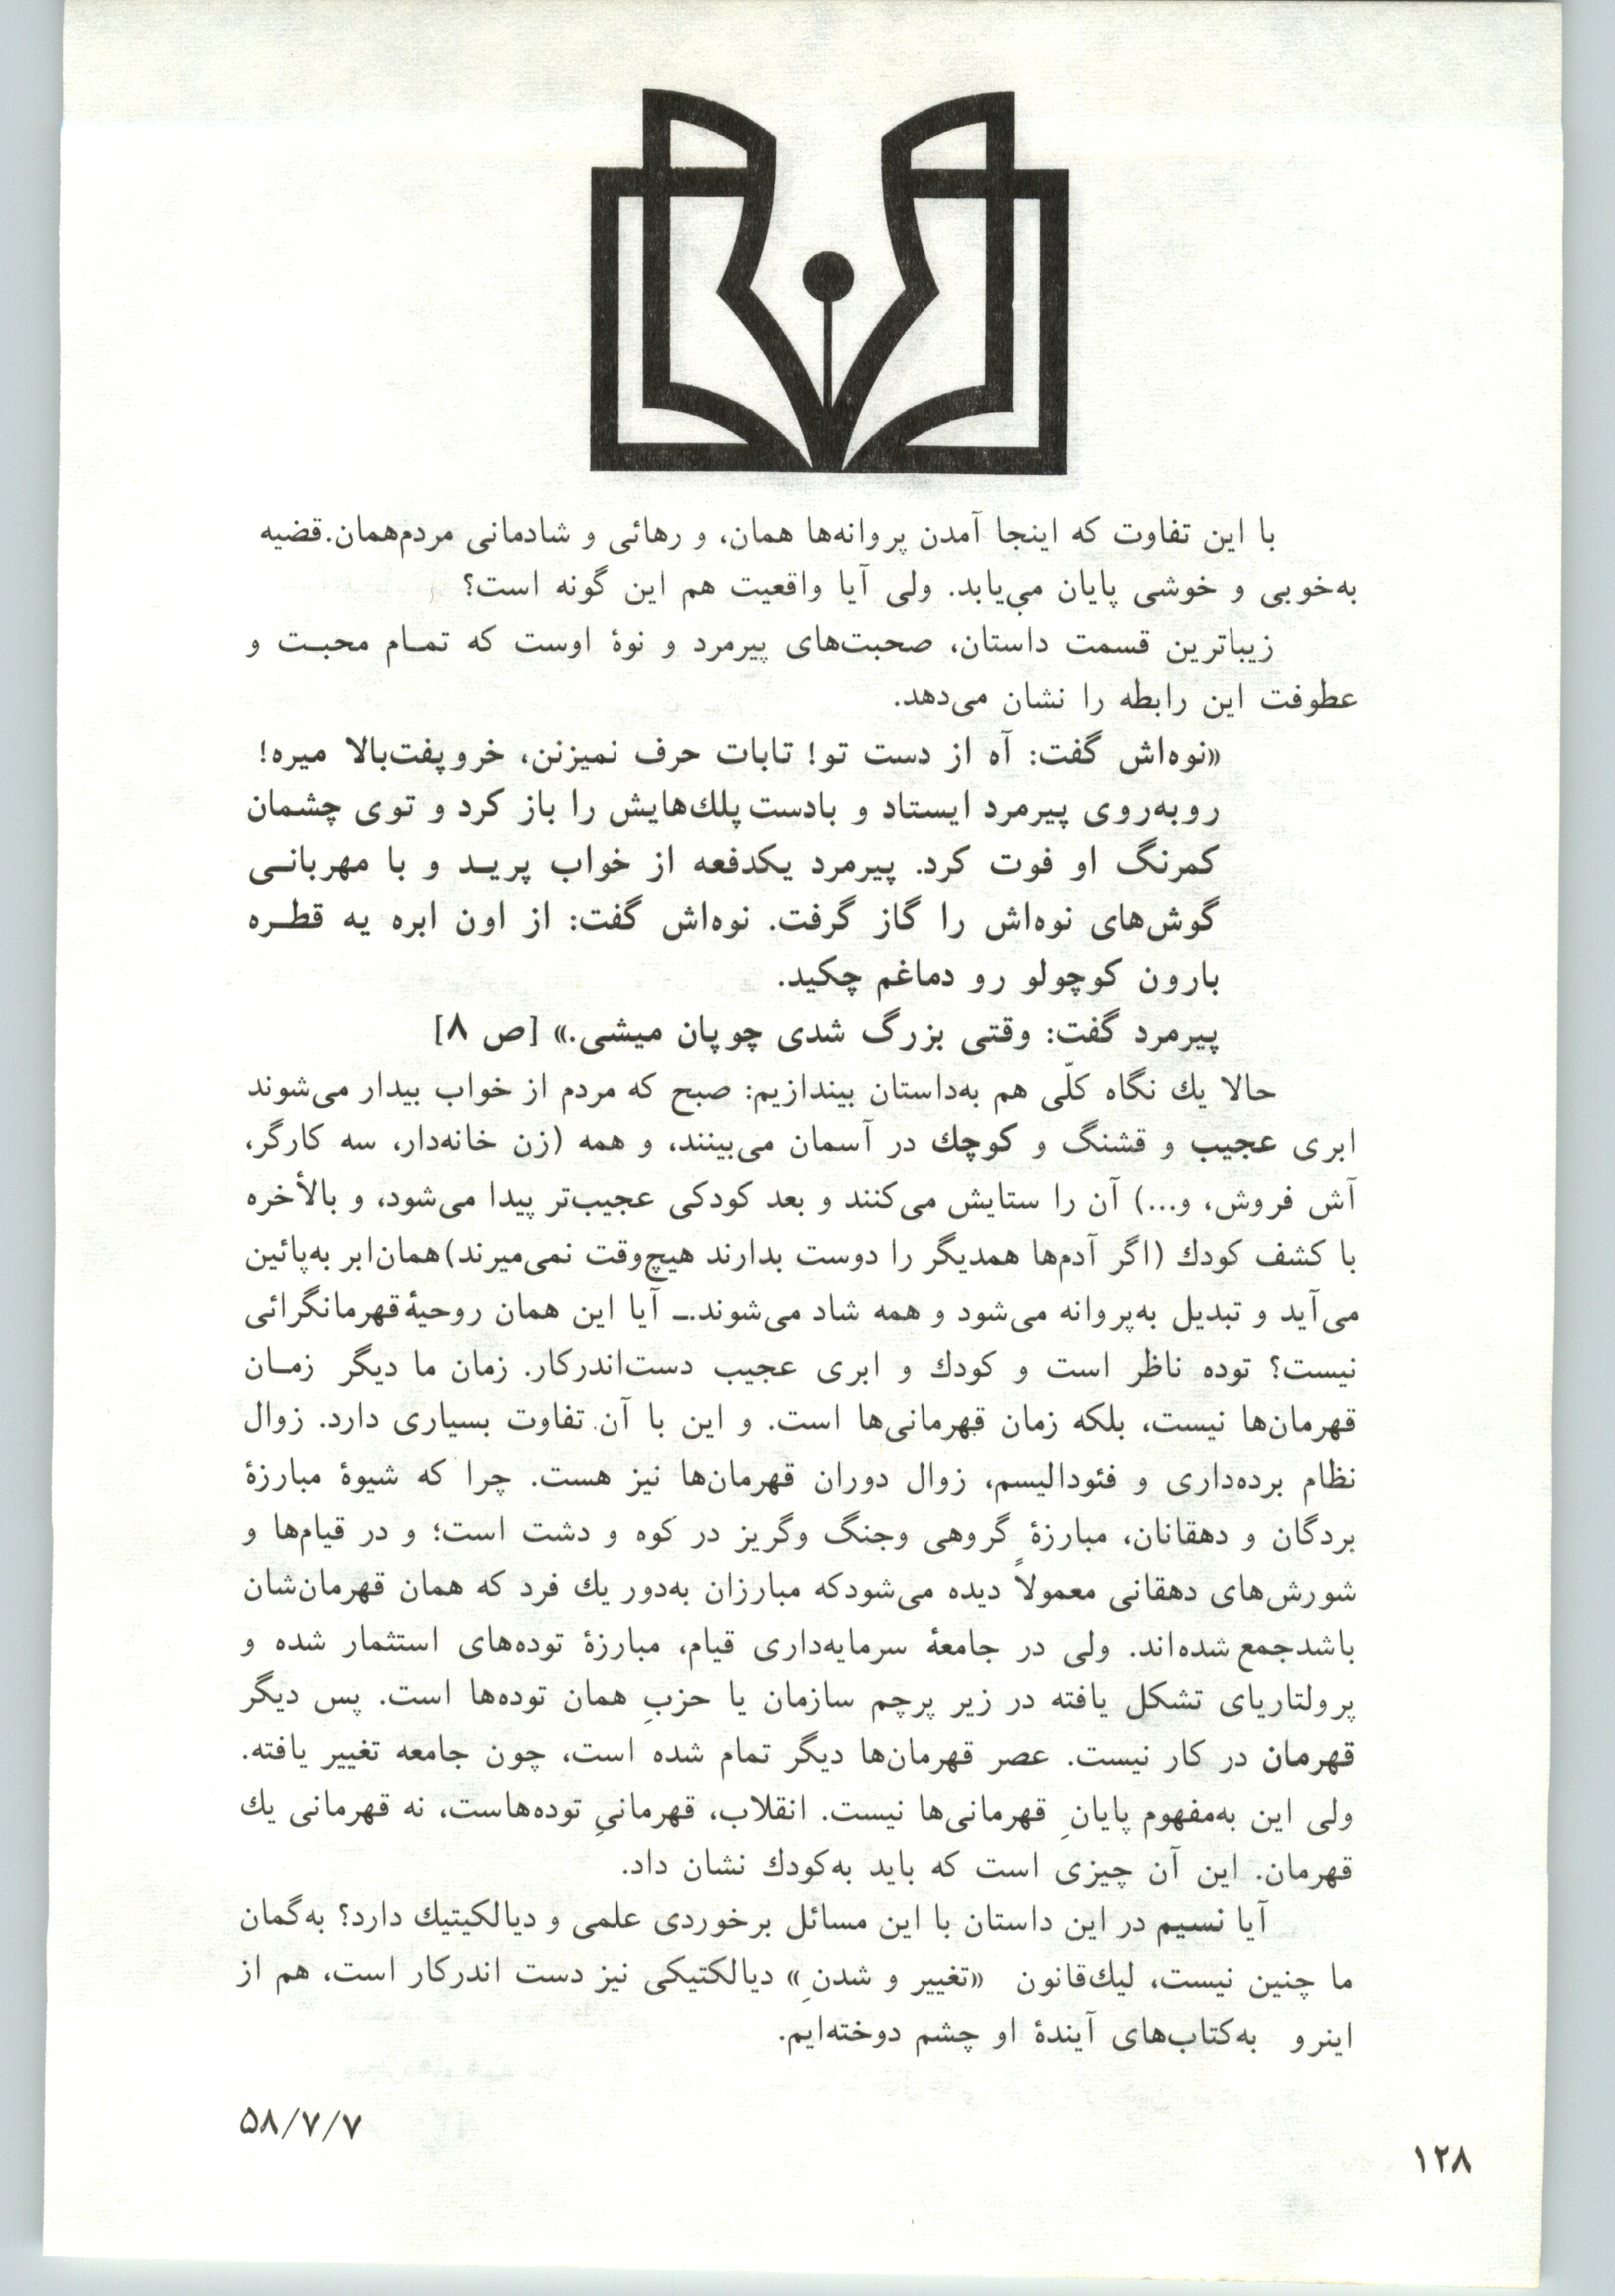 با این تفاوت که اینجا آمدن پروانه‌ها همان، و رهائی و شادمانی مردم‌همان.قضیه
به‌خوبی و خوشی پایان می‌یابد. ولی آیا واقعیت هم این گونه است؟
زیباترین قسمت داستان، صحبت‌های پیرمرد و نوهٔ اوست که تمـام محبـت و
عطوفت این رابطه را نشان می‌دهد.
«نوه‌اش گفت: آه از دست تو! تابات حرف نمیزنن، خروپفت‌بالا میره!
روبه‌روی پیرمرد ایستاد و بادست پلك‌هایش را باز کرد و توی چشمان
کمرنگ او فوت کرد. پیرمرد یکدفعه از خواب پریـد و با مهربانـی
گوش‌های نوه‌اش را گاز گرفت. نوه‌اش گفت: از اون ابره یه قطـره
بارون کوچولو رو دماغم چکید.
پیرمرد گفت: وقتی بزرگ شدی چوپان میشی.» [ص ۸]
حالا یك نگاه کلّی هم به‌داستان بیندازیم: صبح که مردم از خواب بیدار می‌شوند
ابری عجیب و قشنگ و کوچك در آسمان می‌بینند، و همه (زن خانه‌دار، سه کارگر،
آش فروش، و...) آن را ستایش می‌کنند و بعد کودکی عجیب‌تر پیدا می‌شود، و بالأخره
با کشف کودك (اگر آدم‌ها همدیگر را دوست بدارند هیچ‌وقت نمی‌میرند)همان‌ابر به‌پائین
می‌آید و تبدیل به‌پروانه می‌شود و همه شاد می‌شوند.ـ آیا این همان روحیهٔ‌قهرمانگرائی
نیست؟ توده ناظر است و کودك و ابری عجیب دست‌اندرکار. زمان ما دیگر زمـان
قهرمان‌ها نیست، بلکه زمان قهرمانی‌ها است. و این با آن تفاوت بسیاری دارد. زوال
نظام برده‌داری و فئودالیسم، زوال دوران قهرمان‌ها نیز هست. چرا که شیوهٔ مبارزهٔ
بردگان و دهقانان، مبارزهٔ گروهی وجنگ وگریز در کوه و دشت است؛ و در قیام‌ها و
شورش‌های دهقانی معمولاً دیده می‌شودکه مبارزان به‌دور یك فرد که همان قهرمان‌شان
باشدجمع شده‌اند. ولی در جامعهٔ سرمایه‌داری قیام، مبارزهٔ توده‌های استثمار شده و
پرولتاریای تشکل یافته در زیر پرچم سازمان یا حزبِ همان توده‌ها است. پس دیگر
قهرمان در کار نیست. عصر قهرمان‌ها دیگر تمام شده است، چون جامعه تغییر یافته.
ولی این به‌مفهوم پایانِ قهرمانی‌ها نیست. انقلاب، قهرمانیِ توده‌هاست، نه قهرمانی یك
قهرمان. این آن چیزی است که باید به‌کودك نشان داد.
آیا نسیم در این داستان با این مسائل برخوردی علمی و دیالکیتیك دارد؟ به‌گمان
ما چنین نیست، لیك‌قانون «تغییر و شدنِ» دیالکتیکی نیز دست اندرکار است، هم از
اینرو به‌کتاب‌های آیندهٔ او چشم دوخته‌ایم.
۵۸/۷/۷
۱۲۸